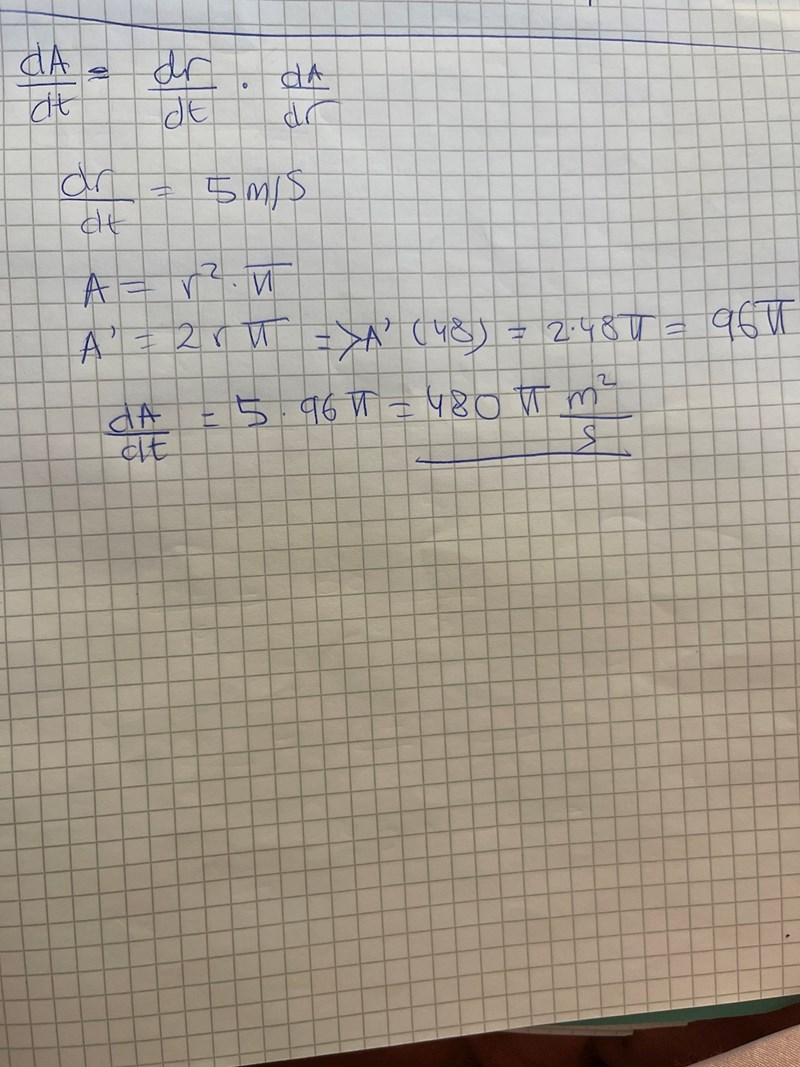 dA/dt = dr/dt · dA/dr
dr/dt = 5 m/s
A = r² · π
A' = 2rπ => A'(48) = 2·48π = 96π
dA/dt = 5 · 96π = 480 π m²/s